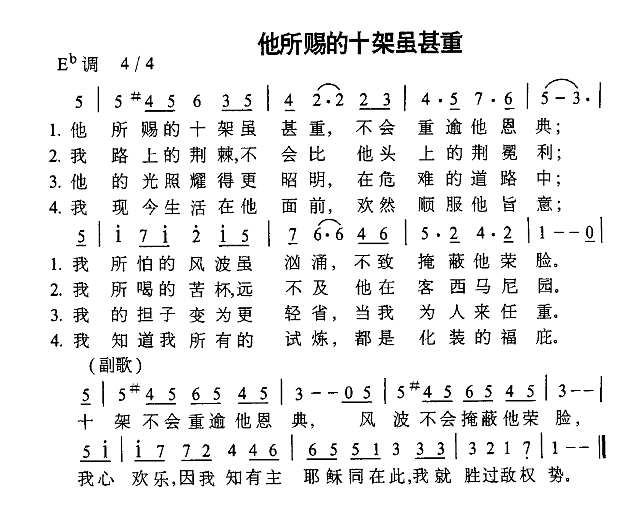 他所赐的十架虽甚重
E♭ 调 4/4
5 | 5 #4 5 6 3 5 | 4 2·2 2 3 | 4·5 7·6 | 5-3·|
1. 他 所 赐的十架虽 甚重, 不会 重逾他恩典;
2. 我 路上的荆棘,不 会比 他头 上的荆冕利;
3. 他 的光照耀得更 昭明, 在危 难的道路中;
4. 我 现今生活在他 面前, 欢然 顺服他旨意;
5 | i 7 i 2 i 5 | 7 6·6 4 6 | 5·2 4·2 | 1--0 |
1. 我 所怕的风波虽 汹涌, 不致 掩蔽他荣脸。
2. 我 所喝的苦杯,远 不及 他在 客西马尼园。
3. 我 的担子变为更 轻省, 当我 为人来任重。
4. 我 知道我所有的 试炼, 都是 化装的福庇。
(副歌)
5 | 5 #4 5 6 5 4 5 | 3--0 5 | 5 #4 5 6 5 4 5 | 3--|
十 架不会重逾他恩 典, 风 波不会掩蔽他荣 脸,
5 i | i 7 7 2 4 4 6 | 6 5 5 1 3 3 3 | 3 2 1 7 | 1--‖
我心 欢乐,因我 知有主 耶稣同在此,我就 胜过敌权 势。